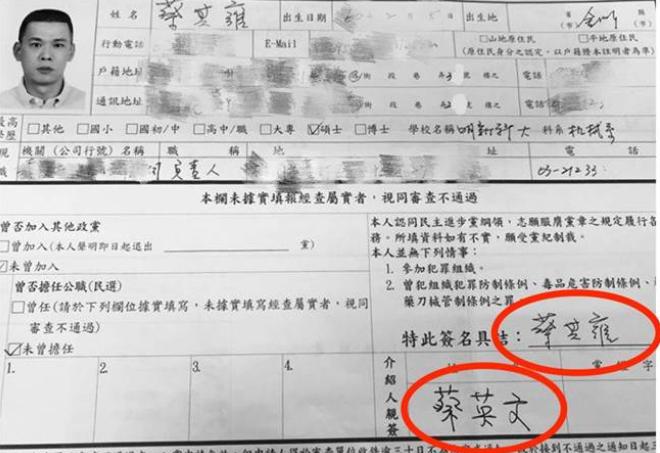 姓名 蔡其雍 出生日期 出生地
行動電話 E-Mail □山地原住民 □平地原住民
(原住民身分之認定，以戶籍謄本註明者為準)
戶籍地址 街 段 巷 弄 號 樓之 電話
通訊地址 街 段 巷 弄 號 樓之 電話
最高學歷 □其他 □國小 □國初/中 □高中/職 □大專 ☑碩士 □博士 學校名稱 明新科大 科系
機關(公司行號)名稱 職稱 地 址 電話
負責人 03-212 33
本欄未據實填報經查屬實者，視同審查不通過
曾否加入其他政黨
□曾加入(本人聲明即日起退出 黨)
☑未曾加入
曾否擔任公職(民選)
□曾任(請於下列欄位據實填寫，未據實填寫經查屬實者，視同
審查不通過)
☑未曾擔任
1. 2. 3. 4.
本人認同民主進步黨綱領，志願服膺黨章之規定履行
務。所填資料如有不實，願受黨紀制裁。
本人並無下列情事：
1. 參加犯罪組織。
2. 曾犯組織犯罪防制條例、毒品危害防制條例、
藥刀械管制條例之罪。
特此簽名具結： 蔡其雍
介紹人親簽 蔡英文